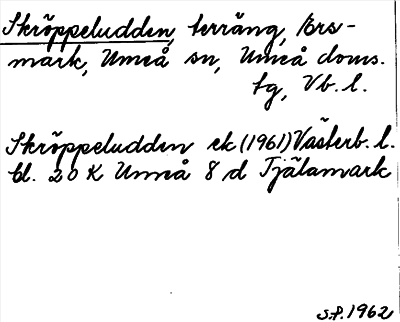 Skröppeludden, terräng, Brs-
mark, Umeå sn, Umeå doms.
tg, Vb. l.
Skröppeludden ek (1961) Västerb. l.
bl. 20 K Umeå 8 d Tjälamark
S.P. 1962